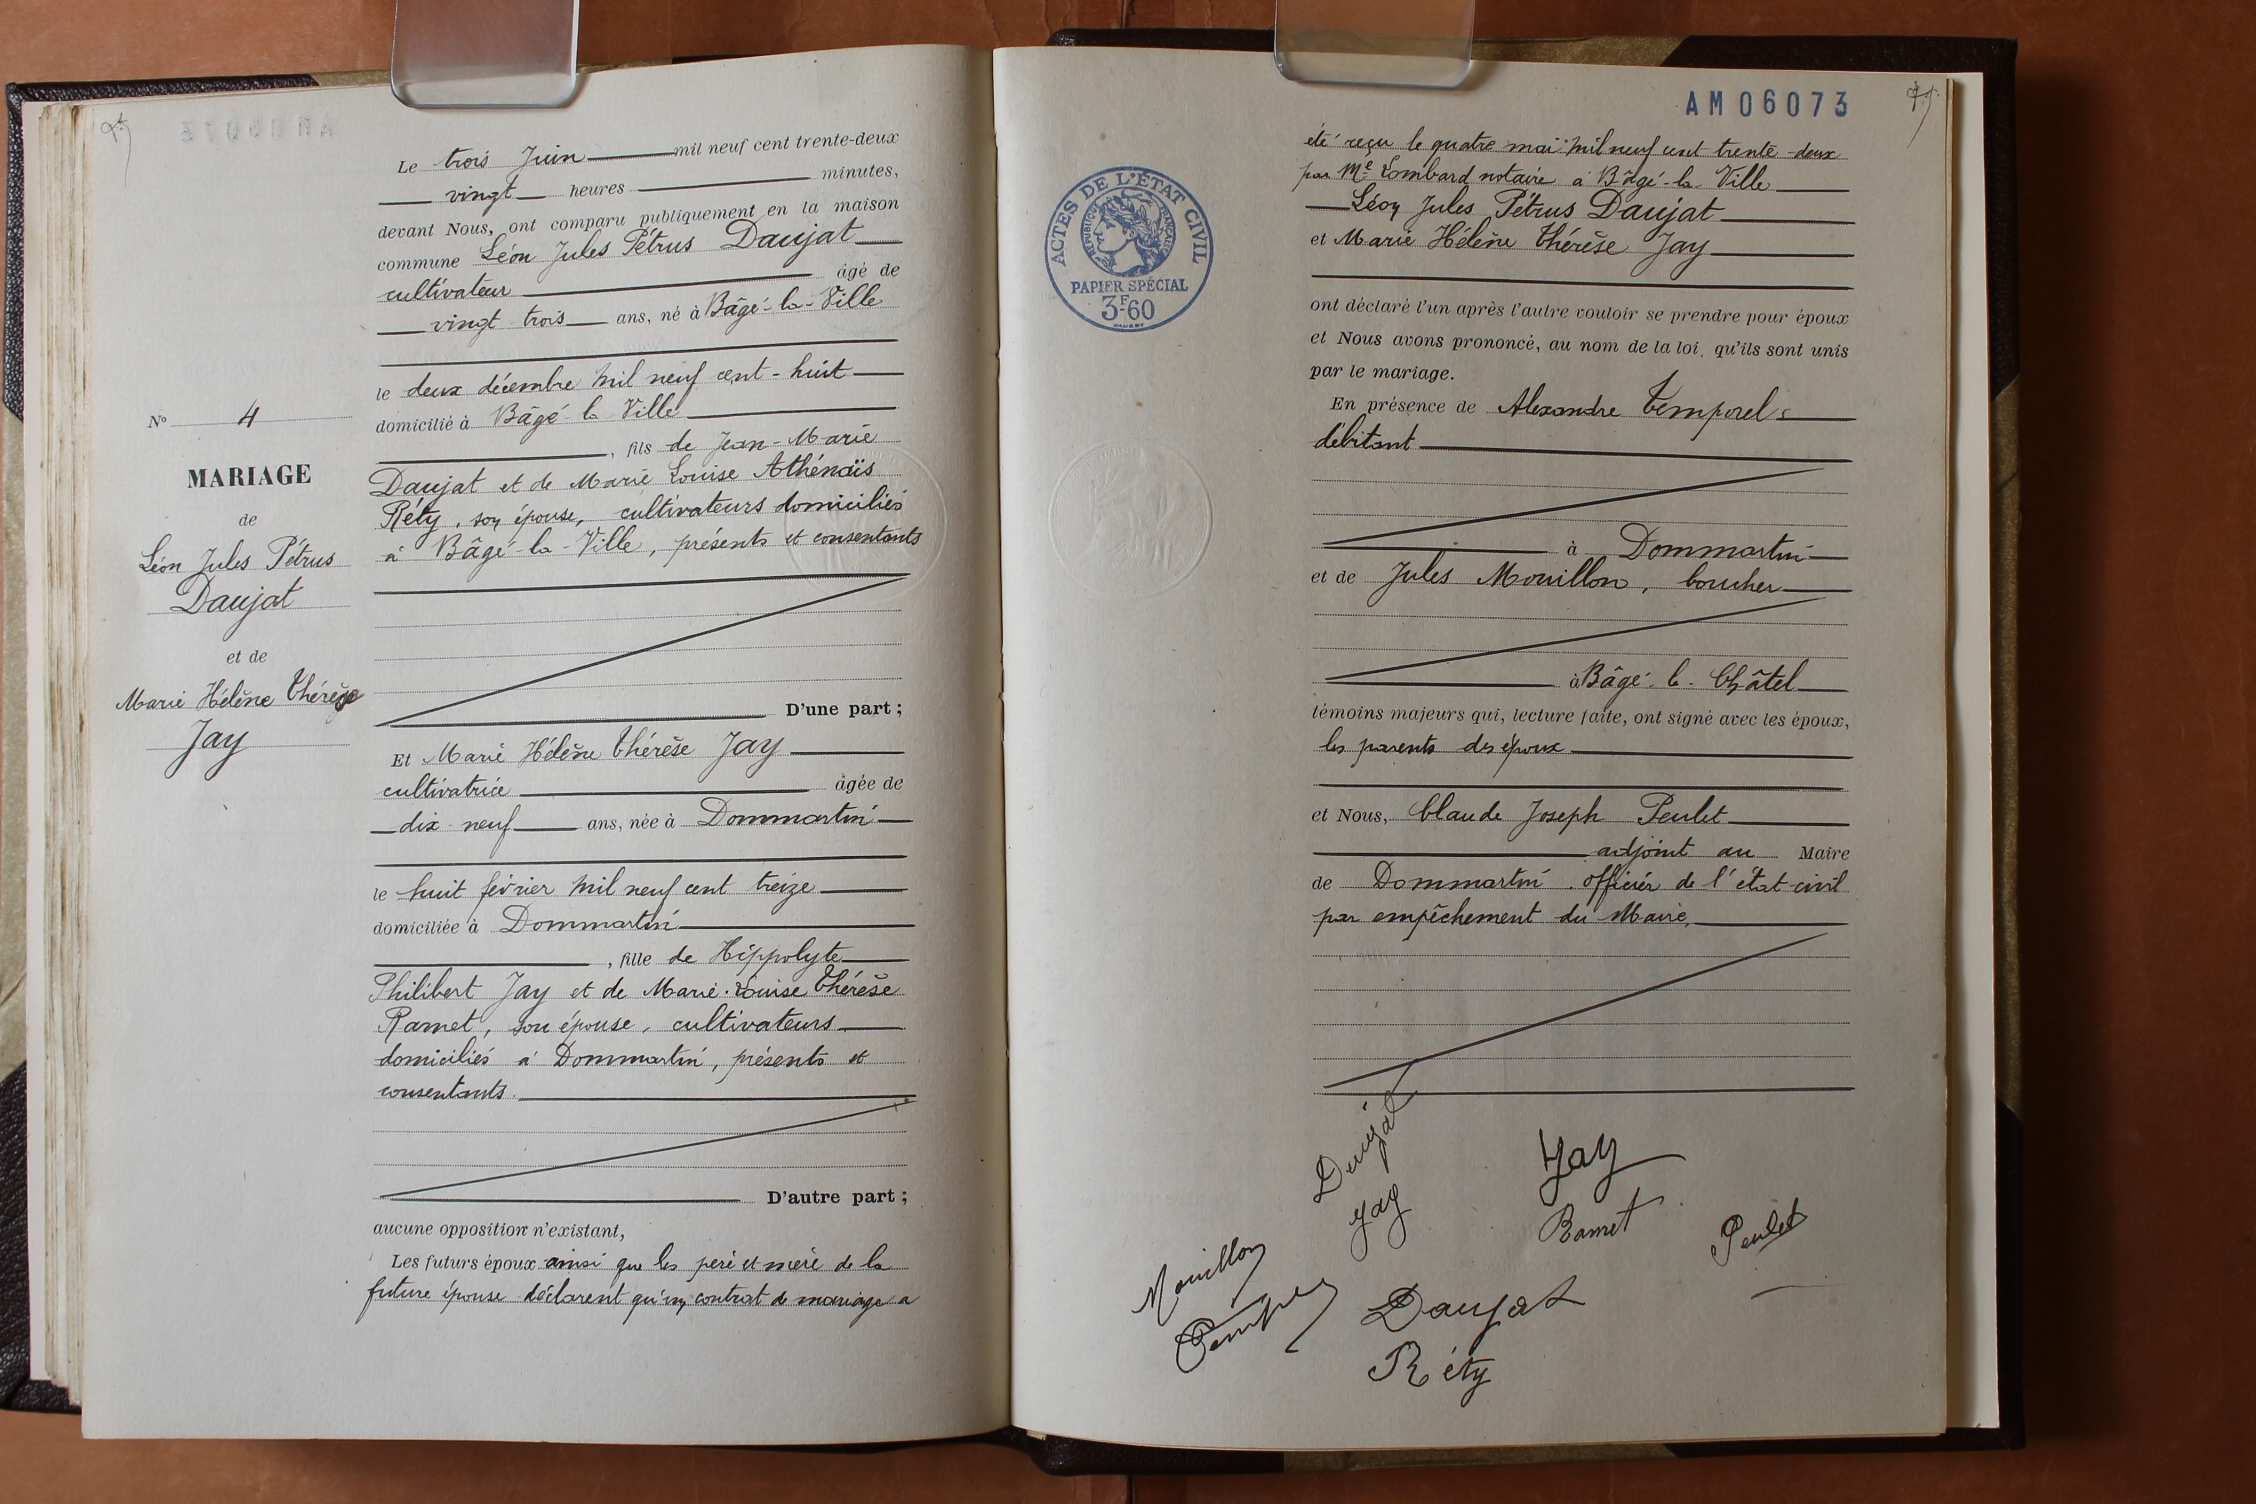 Le trois Juin mil neuf cent trente-deux
vingt heures minutes,
devant Nous, ont comparu publiquement en la maison
commune Léon Jules Pétrus Daujat
cultivateur âgé de
vingt trois ans, né à Bâgé-la-Ville
le deux décembre mil neuf cent-huit
domicilié à Bâgé la Ville
, fils de Jean-Marie
Daujat et de Marie Louise Athénaïs
Réty, son épouse, cultivateurs domiciliés
à Bâgé-la-Ville, présents et consentants
D'une part ;
Et Marie Hélène Thérèse Jay
cultivatrice âgée de
dix-neuf ans, née à Dommartin
le huit février mil neuf cent treize
domiciliée à Dommartin
, fille de Hippolyte
Philibert Jay et de Marie-Louise Thérèse
Ramet, son épouse, cultivateurs
domiciliés à Dommartin, présents et
consentants.
D'autre part ;
aucune opposition n'existant,
Les futurs époux ainsi que les père et mère de la
future épouse déclarent qu'un contrat de mariage a
N° 4
MARIAGE
de
Léon Jules Pétrus
Daujat
et de
Marie Hélène Thérèse
Jay
AM06073
été reçu le quatre mai mil neuf cent trente-deux
par Me Lombard notaire à Bâgé-la-Ville
Léon Jules Pétrus Daujat
et Marie Hélène Thérèse Jay
ont déclaré l'un après l'autre vouloir se prendre pour époux
et Nous avons prononcé, au nom de la loi, qu'ils sont unis
par le mariage.
En présence de Alexandre Temporel
débitant
à Dommartin
et de Jules Mouillon, boucher
à Bâgé-le-Châtel
témoins majeurs qui, lecture faite, ont signé avec les époux,
les parents des époux
et Nous, Claude Joseph Peulet
adjoint au Maire
de Dommartin officier de l'état civil
par empêchement du Maire.
ACTES DE L'ÉTAT CIVIL
RÉPUBLIQUE FRANÇAISE
PAPIER SPÉCIAL
3F60
Daujat
Jay
Jay
Ramet
Peulet
Mouillon
Daujat
Réty